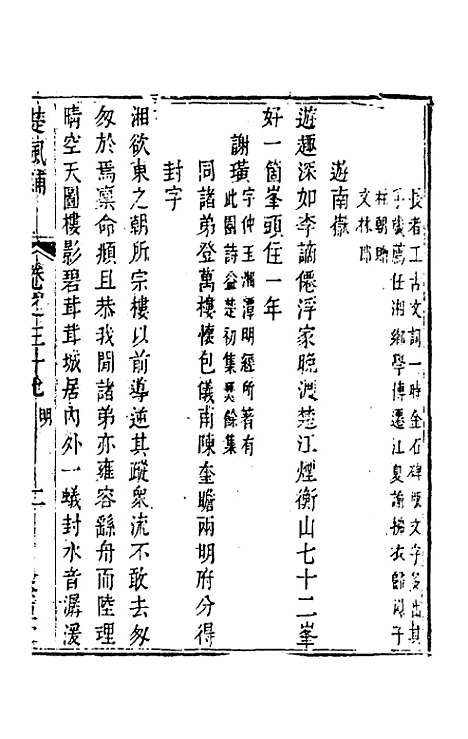 長者工古文詞一時金石碑版文字多出其
手膺薦任湘鄉學傳遷江夏諭拂衣歸同子
柱朝贈
文林郎
遊南嶽
遊趣深如李謫僊浮家晚渡楚江煙衡山七十二峯
好一箇峯頭住一年
謝璜
字仲玉湘潭明經所著有
此園詩益楚初集賈餘集
同諸弟登萬樓懷包儀甫陳奎瞻兩明府分得
封字
湘欲東之朝所宗樓以前導逆其蹤衆流不敢去匆
匆於焉稟命頫且恭我聞諸弟亦雍容繇舟而陸理
晴空天圍樓影碧茸茸城居內外一蟻封水音潺湲
楚風補
卷之三十九
明
二